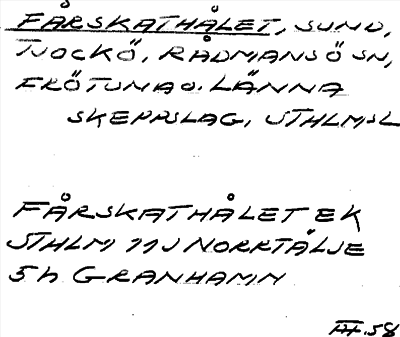 FÅRSKATHÅLET, SUND,
TJOCKÖ, RÅDMANSÖ SN,
FRÖTUNA O. LÄNNA
SKEPPSLAG, STHLMSL
FÅRSKATHÅLET EK
STHLM 11J NORRTÄLJE
5h GRANHAMN
III.58